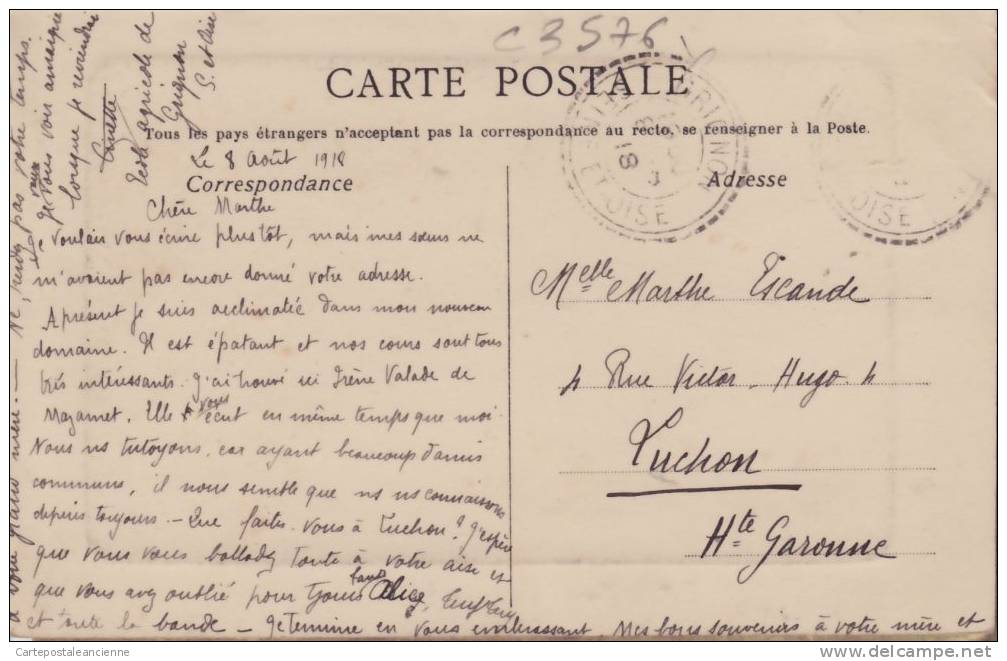 C 3576
CARTE POSTALE
Tous les pays étrangers n'acceptent pas la correspondance au recto, se renseigner à la Poste.
Ecole agricole de
Grignon
S. et Oise
Le 8 Août 1918
Correspondance
Chère Marthe
Je voulais vous écrire plus tôt, mais mes sœurs ne
m'avaient pas encore donné votre adresse.
A présent je suis acclimatée dans mon nouveau
domaine. Il est épatant et nos cours sont tous
très intéressants. J'ai trouvé ici Irène Valade de
Mazamet. Elle vous écrit en même temps que moi.
Nous ns tutoyons, car ayant beaucoup d'amis
communs, il nous semble que ns ns connaissons
depuis toujours. - Que faites-vous à Luchon? J'espère
que vous vous ballady toute à votre aise et
que vous avez oublié pour tjours tante Alice,
et toute la bande - Je termine en vous embrassant. Mes bons souvenirs à votre mère et
à votre grand'mère. - Ne perdez pas votre temps.
Je veux vous voir amaigrie
lorsque je reviendrai
Ginette
Adresse
Melle Marthe Escande
4 Rue Victor-Hugo 4
Luchon
Hte Garonne
GRIGNON
ET OISE
8
18
OISE
Cartepostaleancienne
www.delcampe.net